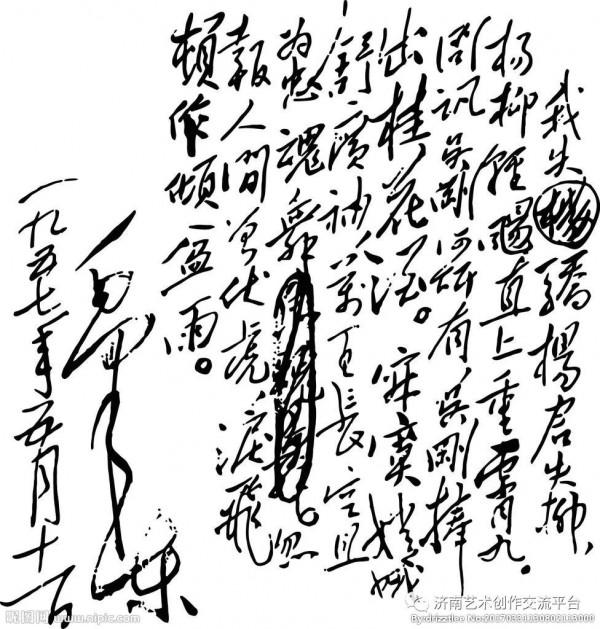 我失驕楊君失柳
杨柳輕颺直上重霄九。
问訊吴剛何所有吴剛捧
出桂花酒。寂寞嫦娥
舒廣袖萬里長空且
为忠魂舞。忽
報人間曾伏虎淚飛
頓作傾盆雨。
毛泽东
一九五七年五月十一日
昵图网 www.nipic.com
济南艺术创作交流平台
By:drizztlee